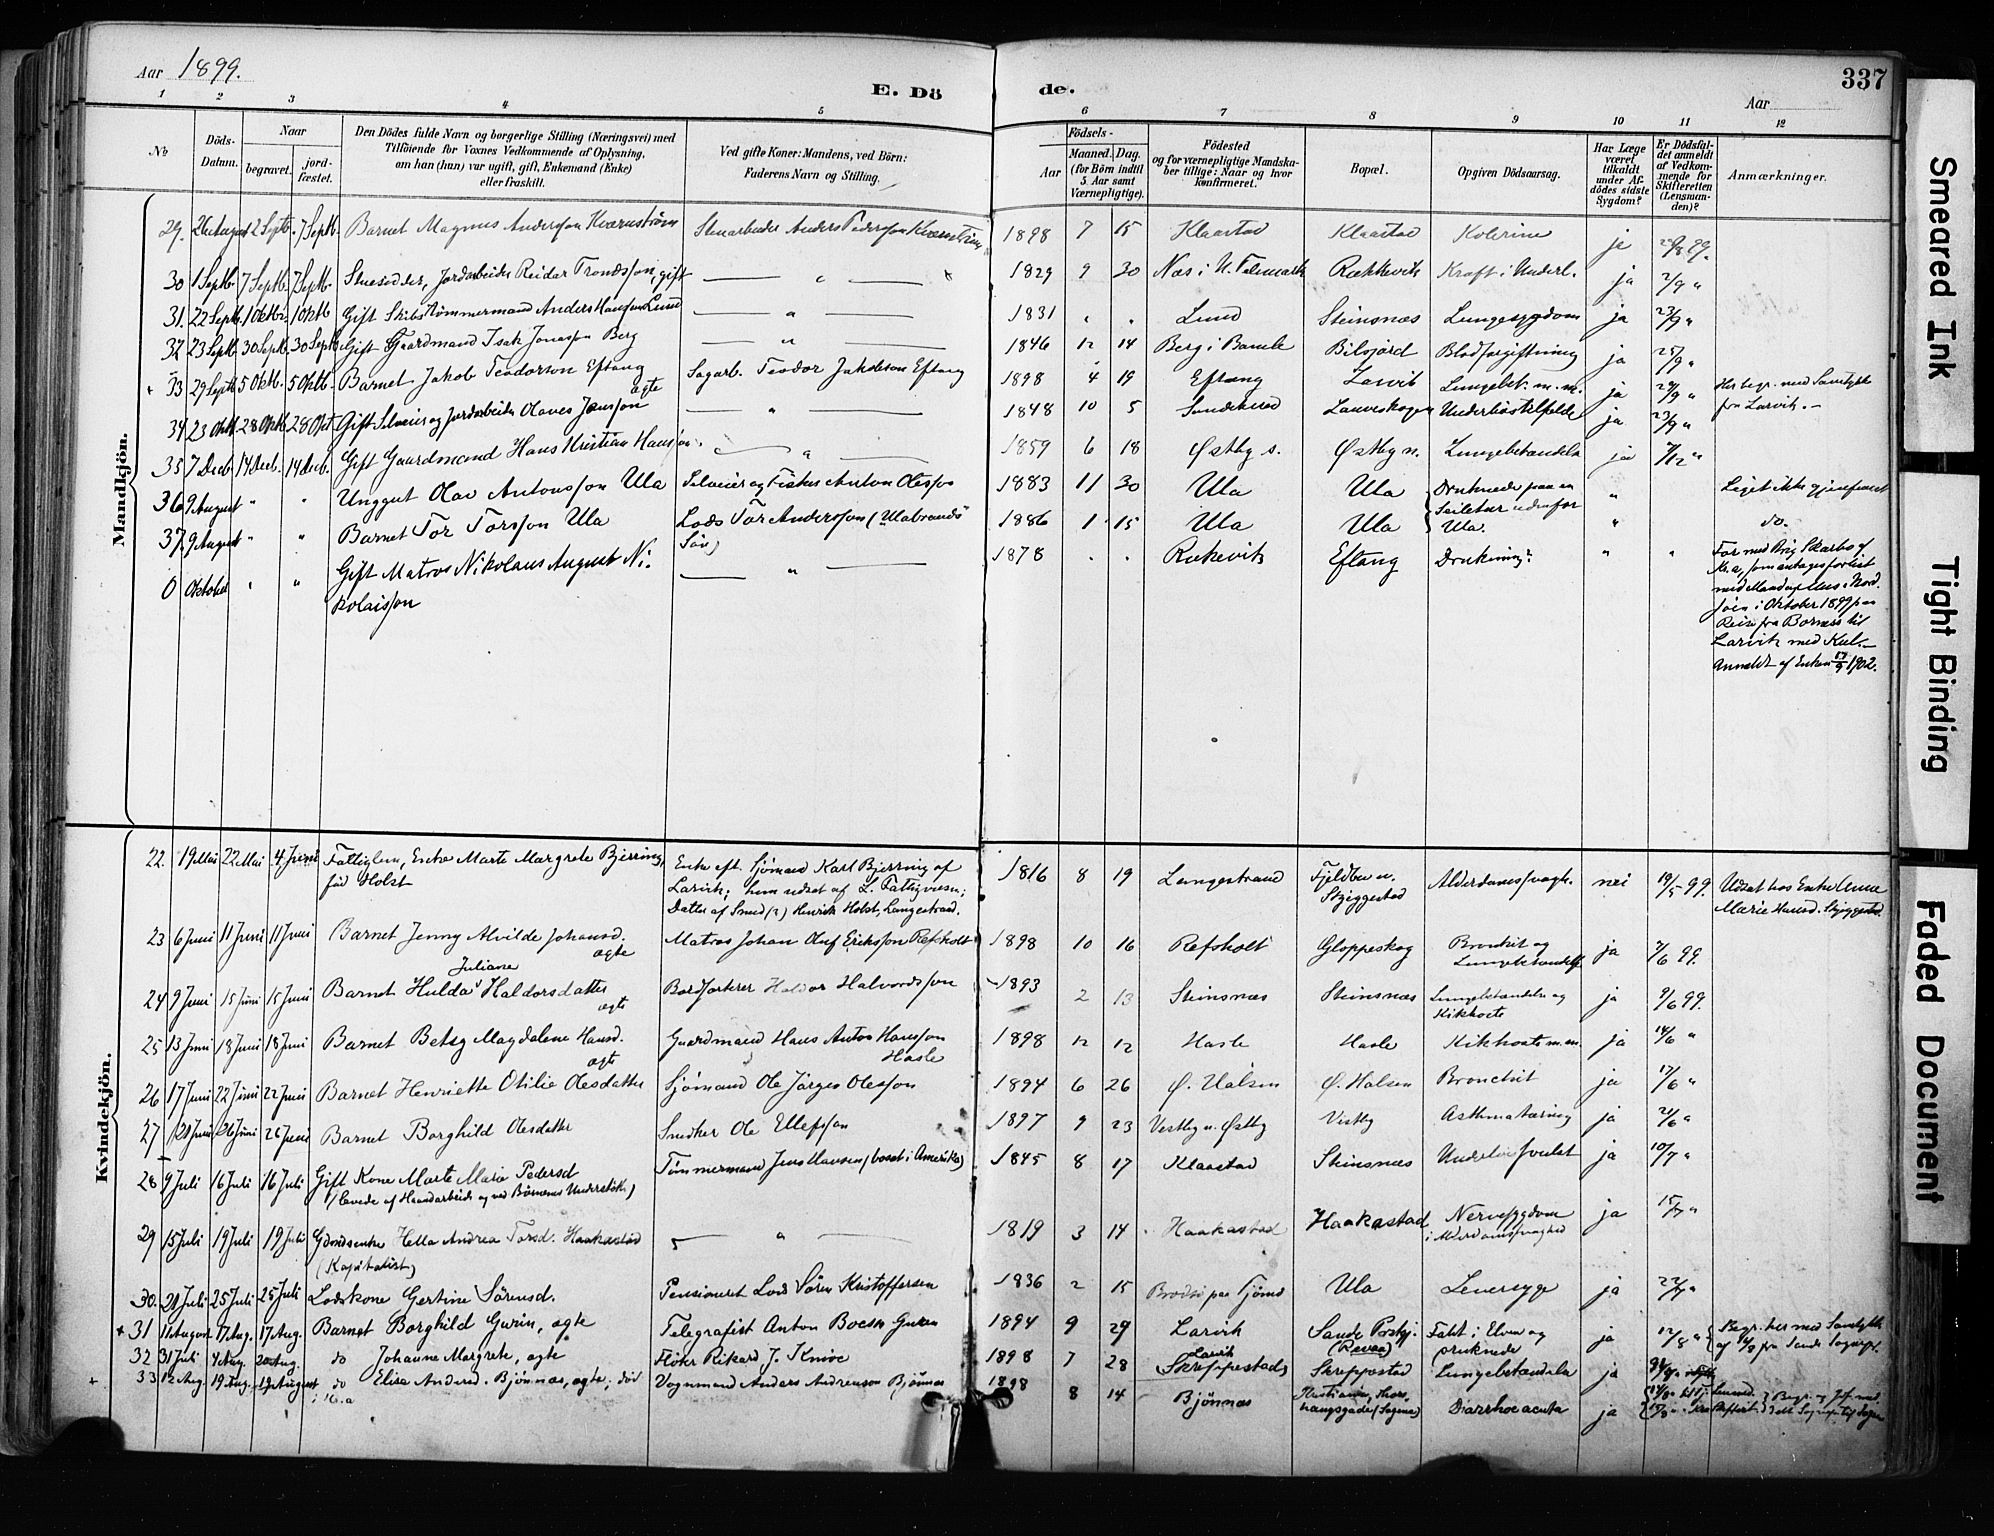 Aar 1899.
E. Dö de.
337
Aar
1 2 3 4 5 6 7 8 9 10 11 12
No
Döds-Datum.
Naar
begravet.
jord-fæstet.
Den Dödes fulde Navn og borgerlige Stilling (Næringsvei) med
Tilföiende for Voxnes Vedkommende af Oplysning,
om han (hun) var ugift, gift, Enkemand (Enke)
eller fraskilt.
Ved gifte Koner: Mandens, ved Börn:
Faderens Navn og Stilling.
Födsels-
Aar
Maaned. Dag.
(for Börn indtil
5 Aar samt
Værnepligtige).
Födested
og for værnepligtige Mandska-
ber tillige: Naar og hvor
konfirmeret.
Bopæl.
Opgiven Dödsaarsag.
Har Læge
været
tilkaldt
under Af-
dödes sidste
Sygdom?
Er Dödsfal-
det anmeldt
af Vedkom-
mende for
Skifteretten
(Lensman-
den)?
Anmærkninger.
Mandkjön.
29. 26 August 2 Septb. 7 Septb. Barnet Magnus Anderssen Kværnström Stenarbeider Anders Pedersson 1898 7 15 Klaastad Klaastad Kolerine ja
30 1 Septb. 7 Septb. 7 Septb. Jordarbeider Reidar Trondsson, gift — " — 1829 9 30 Næs i N. Telemark Rækkevik Kræft i Underl. ja 2/9 "
31. 22 Septb. 1 Oktbr. 1 Oktb Gift Skibstømmermand Anders Hansen Lund — " — 1831 " " Lund Steinsnæs Lungesygdom ja 23/9 "
32 23 Septb. 30 Septb. 30 Septb. Gift Gaardmand Isak Jonassen Berg — " — 1846 12 14 Berg i Bamle Bilsjord Blodforgiftning ja 25/9 "
33 29 Septb 5 Oktb. 5 Oktb. Barnet Jakob Teodorson Eftang ægte Sagarb. Teodor Jakobson Eftang 1898 4 19 Eftang Larvik Lungebet. m. m. ja 29/9 " Her begr. med Samtykke
fra Larvik. —
34 23 Oktb 28 Oktb. 28 Okt Gift Selveier og Jordarbeider Olaves Jansson — " — 1848 10 5 Sandekrud Lauveskogen ja
35 7 Decb. 14 Decb. 14 Decb. Gift Gaardmand Hans Kristian Hansson. — " — 1859 6 18 Østby s. Østby n. Lungebetændelse ja 7/12 "
36 9 August " " Unggut Olav Antonsson Ula Selveier og Fisker Anton Olesson 1883 11 30 Ula Ula Druknede paa en
Seiletur udenfor
Ula. " Liget ikke gjenfundet
37. 9 August " " Barnet Tor Torsson Ula Lods Tor Andersson (Ulabrands
Søn) 1886 1 15 Ula Ula " do.
0 Oktober " " Gift Matros Nikolaus August Ni-
kolaisson — " — 1878 . . Rækevik Eftang Drukning? " " For med Brig Skarbo af
Kr.a, som antages forlist
med Mand og Mus i Nord-
søen i Oktober 1899 paa
Reise fra Borness til
Larvik med Kul. —
Anmeldt af Enken 1902.
Kvindekjön.
22. 19 Mai 22 Mai 4 Juni Fattiglem, Enke Marte Margrete Bjerring,
född Holst Enke eft. Sjömand Karl Bjerring af
Larvik; hun udsat af L. Fattigvæsen;
Datter af Smed (?) Henrik Holst, Langestrand. 1816 8 19 Langestrand Fjeldbu n.
Skjeggestad Alderdomssvagh. nei 19/5 99. Udsat hos Enke Anne
Marie Hansd. Skjeggestad.
23 6 Juni 11 Juni 11 Juni Barnet Jenny Alvilde Johansd. ægte Matros Johan Oluf Eriksson Refsholt 1898 10 16 Refsholt Gloppeskog Bronkit og
Lungebetændelse ja 7/6 99.
24 9 Juni 15 Juni 15 Juni Barnet Hulda Juliane Haldorsdatter ægte Bordsorterer Haldor Halvordsson 1893 2 13 Steinsnæs Steinsnæs Lungebetændelse og
Kikhoste ja 9/6 99.
25 13 Juni 18 Juni 18 Juni Barnet Betsy Magdalene Hansd. ægte Gaardmand Hans Anton Hansson
Hasle 1898 12 12 Hasle Hasle Kikhoste m. m. ja 14/6 "
26 17 Juni 22 Juni 22 Juni Barnet Henriette Otilie Olesdatter Sjömand Ole Jörgen Olesson 1894 6 26 Ø. Halsen Ø. Halsen Bronchit ja 17/6 "
27 Juni 26 Juni 26 Juni Barnet Borghild Olesdatter Snedker Ole Ellefsson 1897 9 23 Vestby n. Østby Vestby Asthma tæring ja
28 9 Juli 16 Juli 16 Juli Gift Kone Marte Marie Pedersd
(levede af Haandarbeide og ved Børnenes Understøttelse) Tömmermand Jens Hansen (bosat i Amerika) 1845 8 17 Klaastad Steinsnæs ja 10/7 "
29 15 Juli 19 Juli 19 Juli Gaardsenke Helle Andrea Torsd. Haakestad
(Kapitalist) — " — 1819 3 14 Haakastad Haakastad Nervesygdom
i Alderdomssvaghed ja 15/7 "
30. 20 Juli 25 Juli 25 Juli Lodskone Gertine Sörensd. Pensioneret Lods Sören Kristoffersen 1836 2 15 Brødsö paa Tjömö Ula Leversyge ja 22/7 "
31 11 August 17 Aug. 17 Aug. Barnet Borghild Gurin, ægte Telegrafist Anton Boesen Gurin 1894 9 29 Larvik Sande Prstgj. Faldt i Elven og
druknede ja 12/8 " Begr. her med Samtykke
af fra Sande Sognepr.
32 31 Juli 4 Aug. 20 Aug. do Johanne Margrete, ægte Rikard J. 1898 7 28 Larvik
Skreppestad Skreppestad Lungebetændelse ja
33 12 Aug. 19 Aug. 19 August do Elise Andersd. Bjönnes, ægte; död
i Kr.a Vognmand Anders Andreassen Bjönnes 1898 8 14 Bjönnes Kristiania, Diarrhoe acuta ja
Smeared Ink
Tight Binding
Faded Document